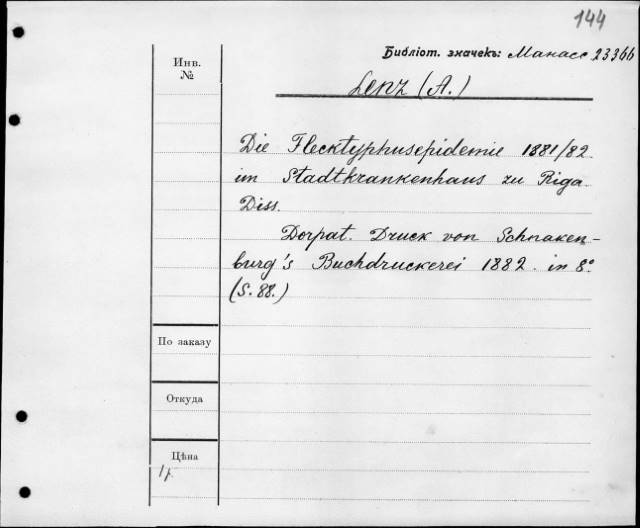 144
Библіот. значекъ: Манасс 23366
Инв.
№
Lenz (A.)
Die Flecktyphusepidemie 1881/82
im Stadtkrankenhaus zu Riga.
Diss.
Dorpat. Druck von Schnaken-
burg's Buchdruckerei 1882. in 8°
(S. 88.)
По заказу
Откуда
Цѣна
1 р.